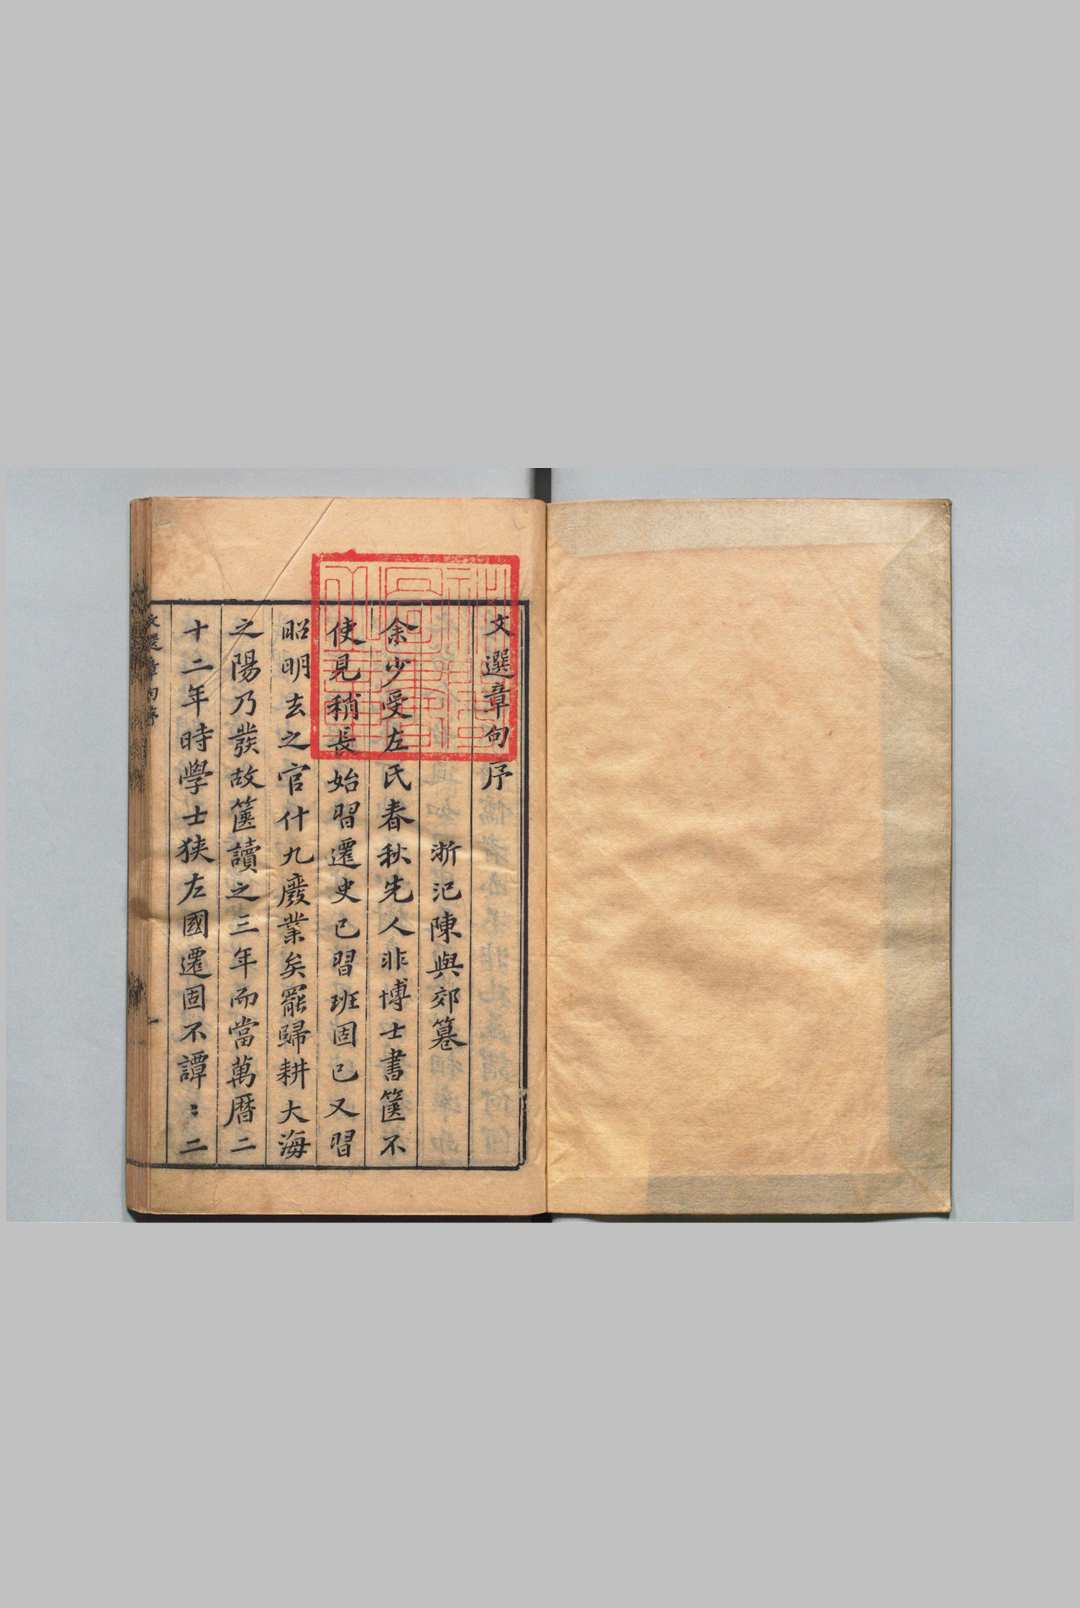 文選章句序
浙汜陳與郊篹
余少受左氏春秋先人非博士書篋不
使見稍長始習遷史已習班固已又習
昭明去之官什九廢業矣罷歸耕大海
之陽乃發故篋讀之三年而當萬曆二
十二年時學士狹左國遷固不譚：二
文選章句序
一